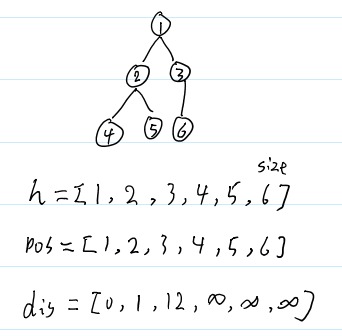 1
2 3
4 5 6
size
h = [1, 2, 3, 4, 5, 6]
pos = [1, 2, 3, 4, 5, 6]
dis = [0, 1, 12, ∞, ∞, ∞]